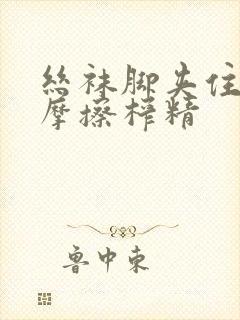 丝袜脚夹住
摩擦榨精
鲁中东